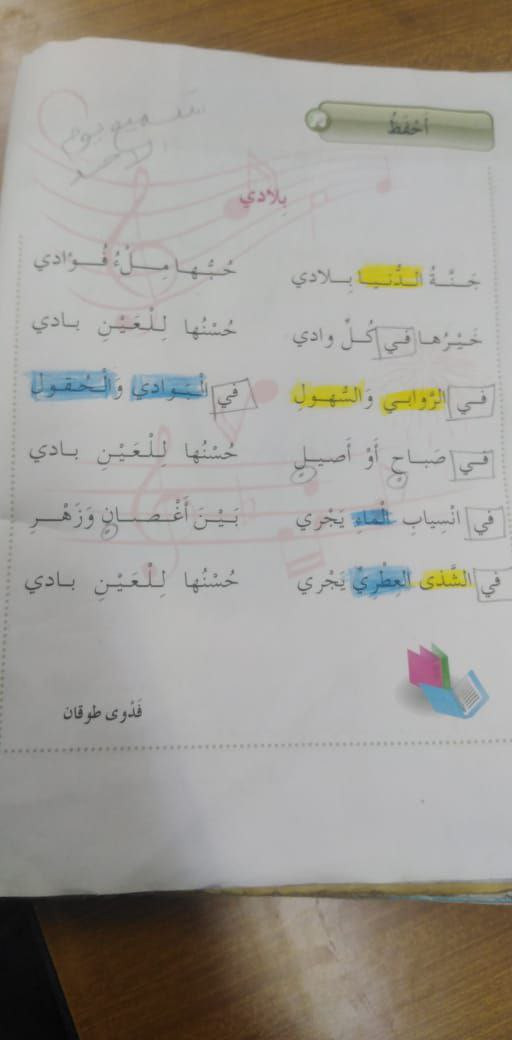 أَحْفَظُ
تسميع يوم
الأحد
بِلادي
جَنَّةُ الدُّنيا بِلادي حُبُّها مِلْءُ فُؤادي
خَيْرُها في كُلِّ وادي حُسْنُها لِلْعَيْنِ بادي
في الرَّوابي وَالسُّهولِ في الْبَوادي وَالْحُقولِ
في صَباحٍ أَوْ أَصيلٍ حُسْنُها لِلْعَيْنِ بادي
في انْسِيابِ الْماءِ يَجْري بَيْنَ أَغْصانٍ وَزَهْرِ
في الشَّذى الْعِطْرِيِّ يَجْري حُسْنُها لِلْعَيْنِ بادي
فَدْوى طوقان